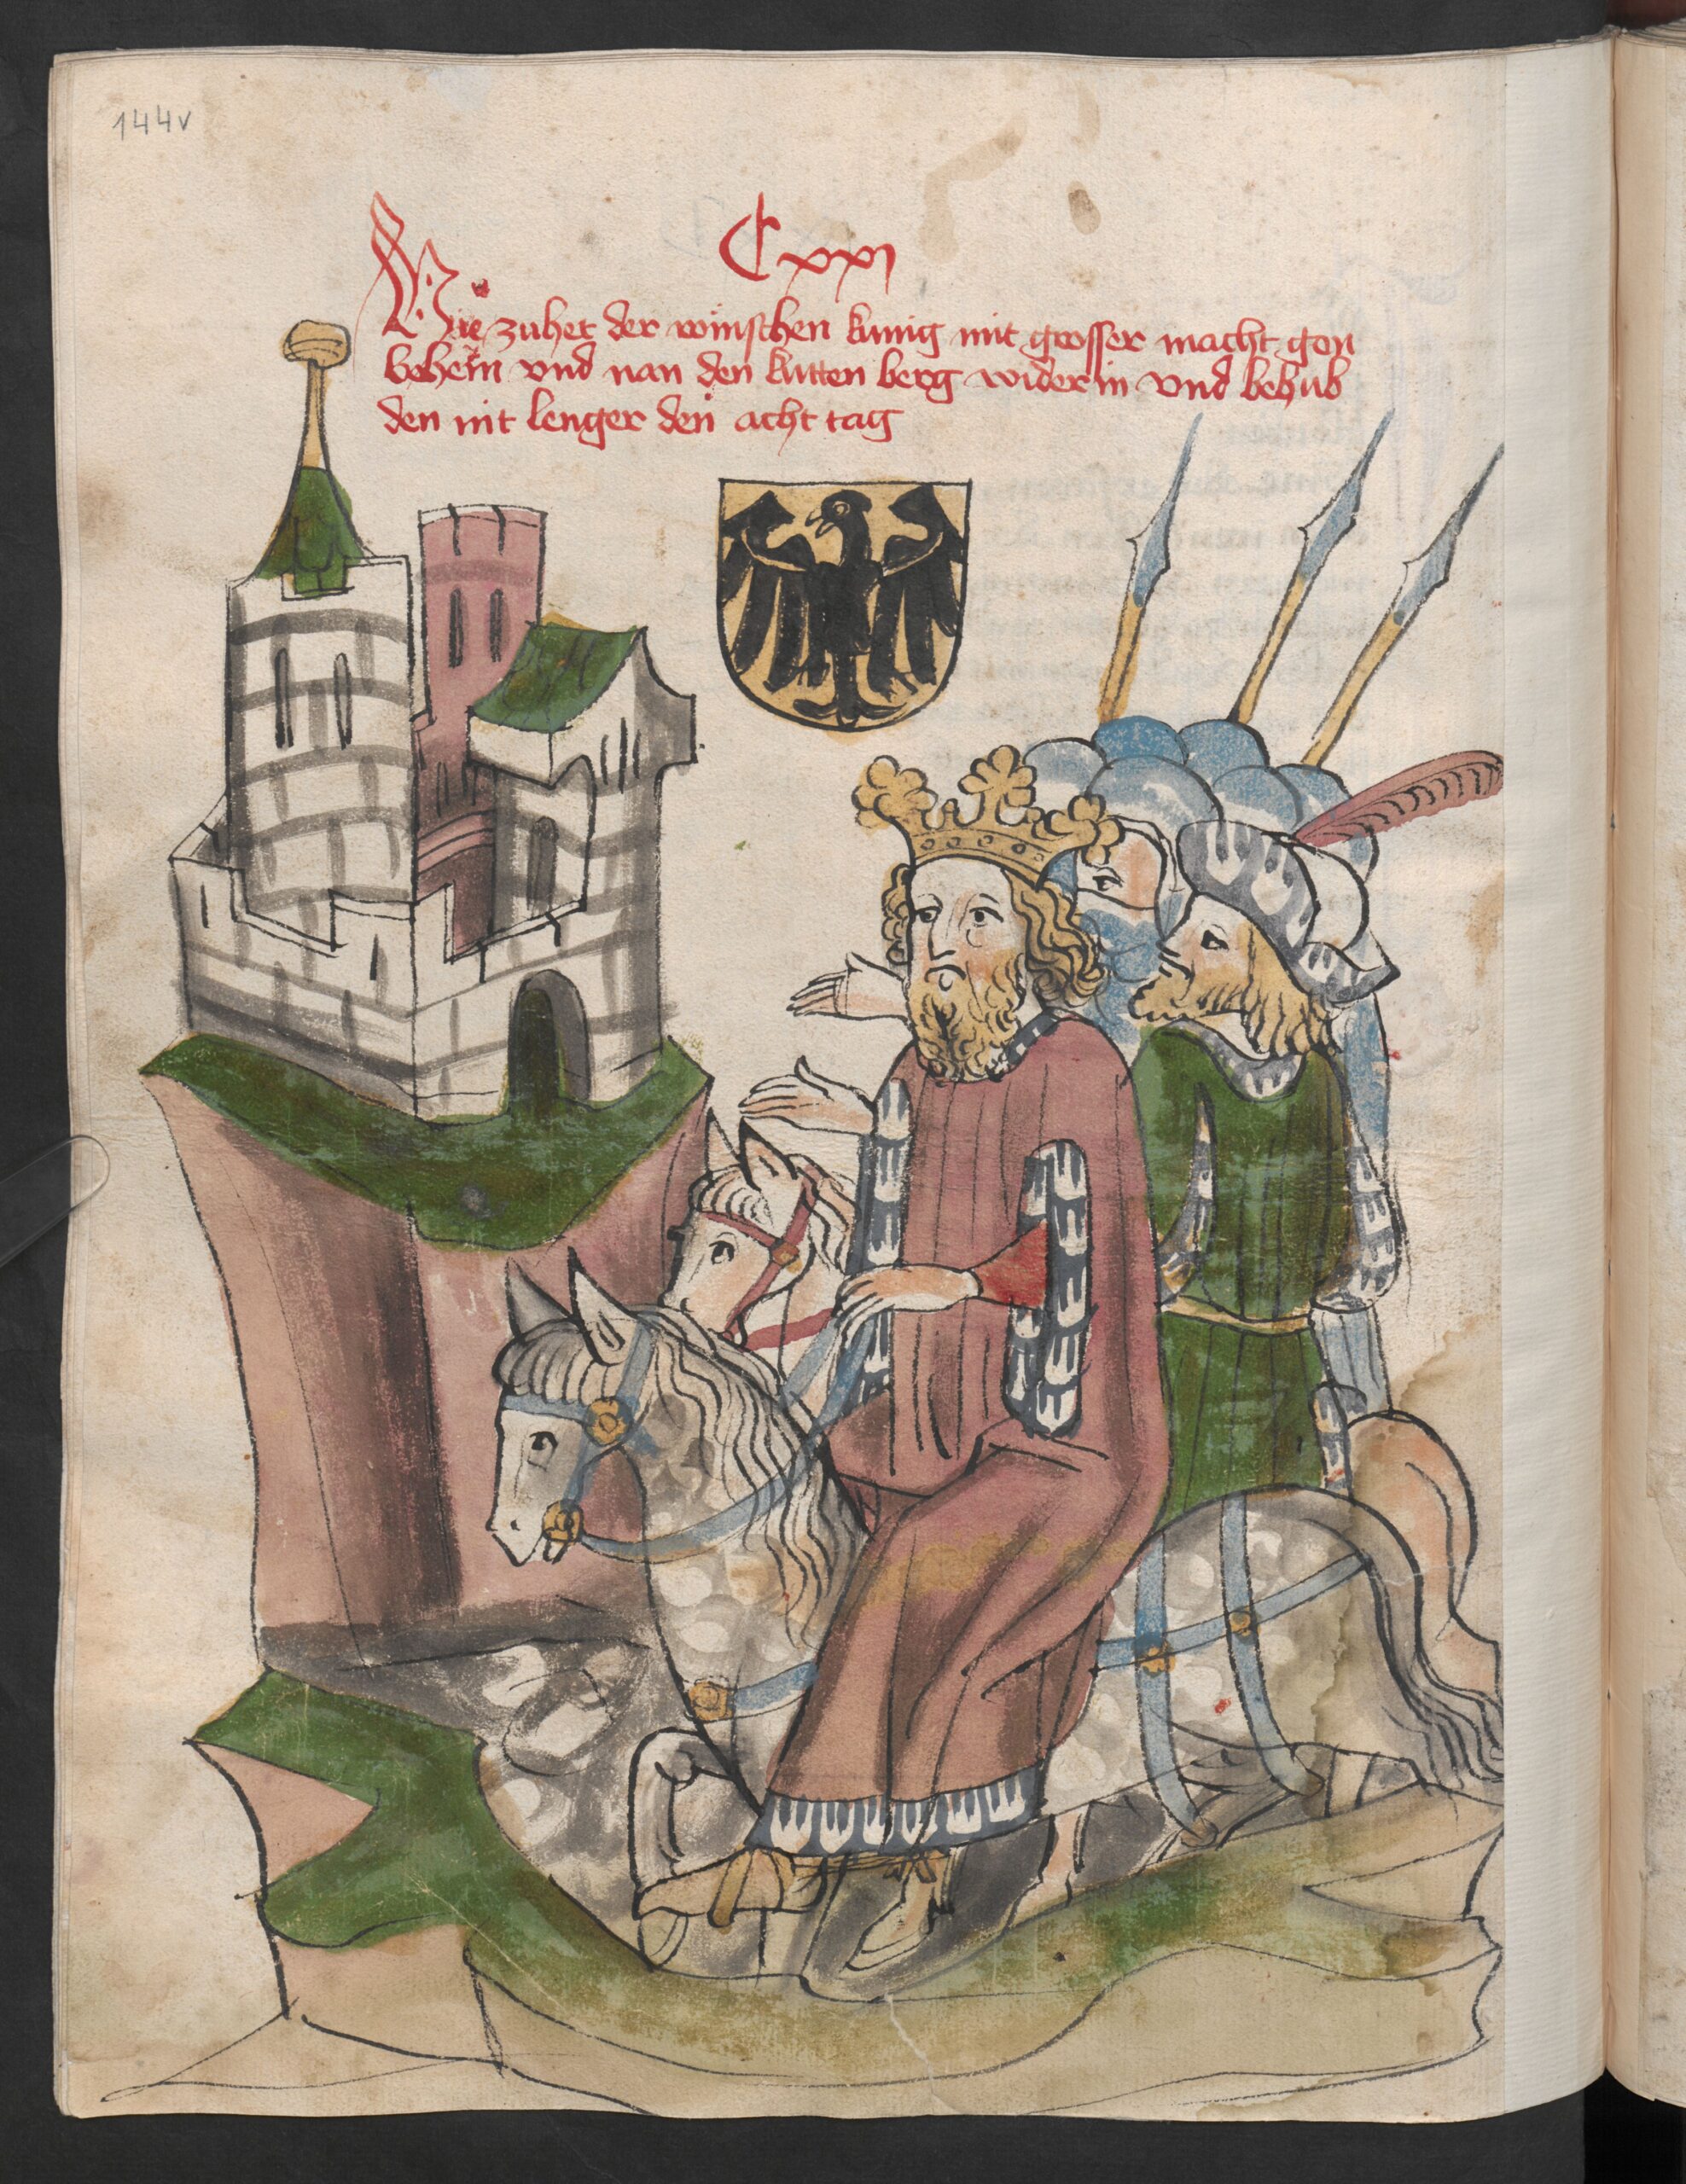 144v
Cxxj
Hie zuhet der römischen kunig mit grosser macht gen
behein und nan den kutten berg wider in vnd behub
den nit lenger den acht tag